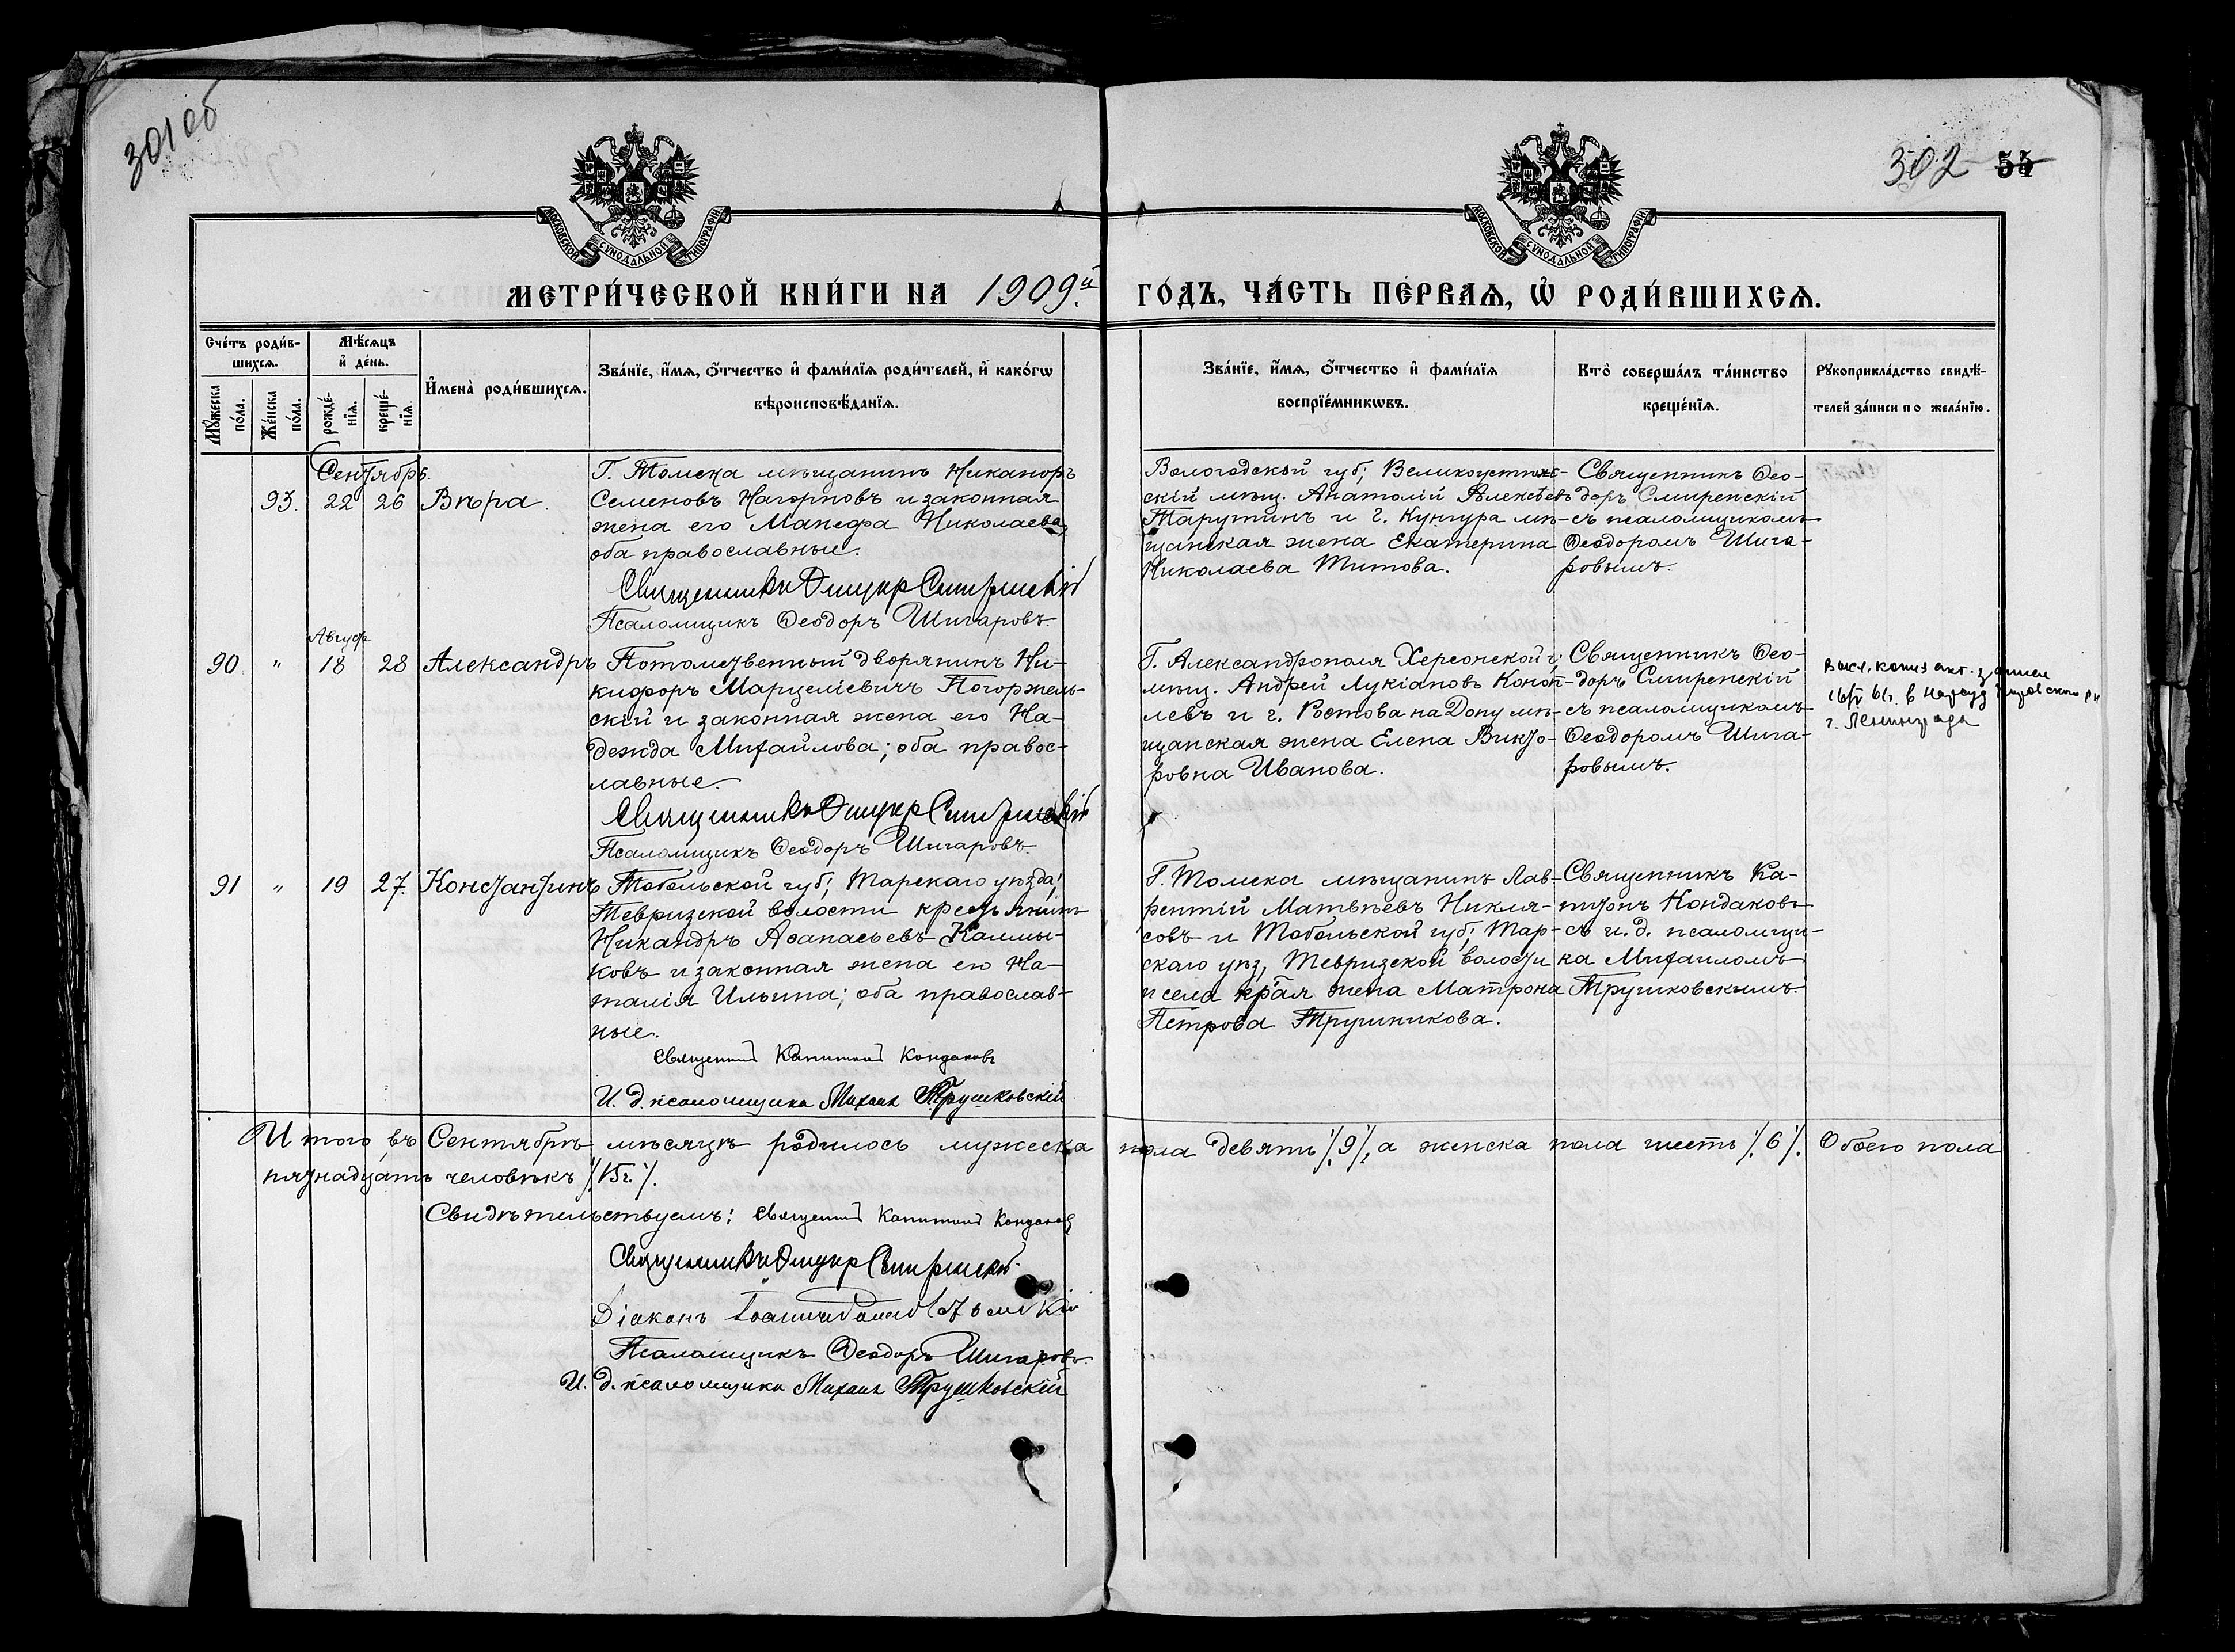 301 об
302 55
МОСКОВСКОЙ СѴНОДАЛЬНОЙ ТИПОГРАФІИ
МОСКОВСКОЙ СѴНОДАЛЬНОЙ ТИПОГРАФІИ
МЕТРИ́ЧЕСКОЙ КНИ́ГИ НА 1909й ГО́ДЪ, ЧА́СТЬ ПЕ́РВАѦ, Ѡ҆ РОДИ́ВШИХСѦ.
Сче́тъ роди́в-
шихсѧ.
Мꙋ́жеска
по́ла.
Же́нска
по́ла.
Мѣ́сѧцъ
и҆ де́нь.
рожде́-
нїѧ.
креще́-
нїѧ.
И҆мена̀ роди́вшихсѧ.
Зва́нїе, и҆́мѧ, ѻ҆́тчество и҆ фами́лїѧ роди́телей, и҆ како́гѡ
вѣроисповѣ́данїѧ.
Зва́нїе, и҆́мѧ, ѻ҆́тчество и҆ фами́лїѧ
воспрїе́мникѡвъ.
Кто̀ соверша́лъ та́инство
креще́нїѧ.
Рꙋкоприкла́дство свидѣ́-
телей за́писи по жела́нїю.
Сентябрь
93. 22 26 Вѣра.
Г. Томска мѣщанинъ Никаноръ
Семеновъ Нагорновъ и законная
жена его Манефа Николаева,
оба православные.
Священникъ Ѳеодоръ Смиренскій
Псаломщикъ Ѳеодоръ Шигаровъ.
Вологодской губ; Великоустюж-
скій мѣщ. Анатолій Алексѣевъ
Тарутинъ и г. Кунгура мѣ-
щанская жена Екатерина
Николаева Титова.
Священникъ Ѳео-
доръ Смиренскій
съ псаломщикомъ
Ѳеодоромъ Шига-
ровымъ.
Август
90 " 18 28 Александръ
Потомственный дворянинъ Ни-
кифоръ Марцеліевичъ Погоржель-
скій и законная жена его На-
дежда Михайлова; оба правос-
лавные.
Священникъ Ѳеодоръ Смиренскій
Псаломщикъ Ѳеодоръ Шигаровъ.
Г. Александрополя Херсонской г;
мѣщ. Андрей Лукіановъ Коноп-
левъ и г. Ростова на Дону мѣ-
щанская жена Елена Викто-
ровна Иванова.
Священникъ Ѳео-
доръ Смиренскій
съ псаломщикомъ
Ѳеодоромъ Шига-
ровымъ.
Высл. копия акт. записи
в нарсуд Кировского рн
г. Ленинграда
91 " 19 27. Константинъ
Тобольской губ; Тарскаго уѣзда,
Тевризской волости крестьянинъ
Никандръ Аѳанасьевъ Калмы-
ковъ и законная жена его На-
талія Ильина; оба православ-
ные.
Священникъ Капитонъ Кондаковъ
И. д. псаломщика Михаил Трушковскій
Г. Томска мѣщанинъ Лав-
рентій Матвѣевъ Никля-
совъ и Тобольской губ; Тар-
скаго уѣз, Тевризской волости
и села кр.ая жена Матрона
Петрова Трушникова.
Священникъ Ка-
питонъ Кондаковъ
съ и. д. псаломщи-
ка Михаиломъ
Трушковскимъ.
Итого въ Сентябрѣ мѣсяцѣ родилось мужеска пола девять /.9/., а женска пола шесть /.6/. Обоего пола
пятнадцать человѣкъ /.15./.
Свидѣтельствуемъ: Священникъ Капитонъ Кондаковъ
Священникъ Ѳеодоръ Смиренскій
Діаконъ Іоаннъ
Псаломщикъ Ѳеодоръ Шигаровъ
И. д. псаломщика Михаил Трушковскій